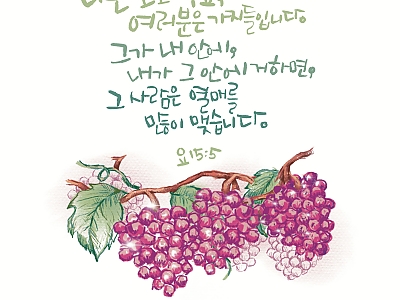 여러분은 가지들입니다.
그가 내 안에,
내가 그 안에 거하면,
그 사람은 열매를
많이 맺습니다.
요 15:5